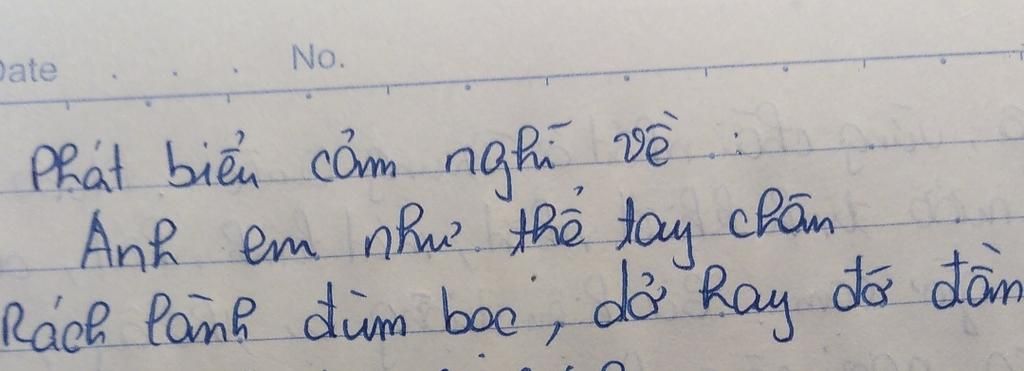 Date . . . No.
Phát biểu cảm nghĩ về :
Anh em như thể tay chân
Rách lành đùm bọc, dở hay đỡ đần